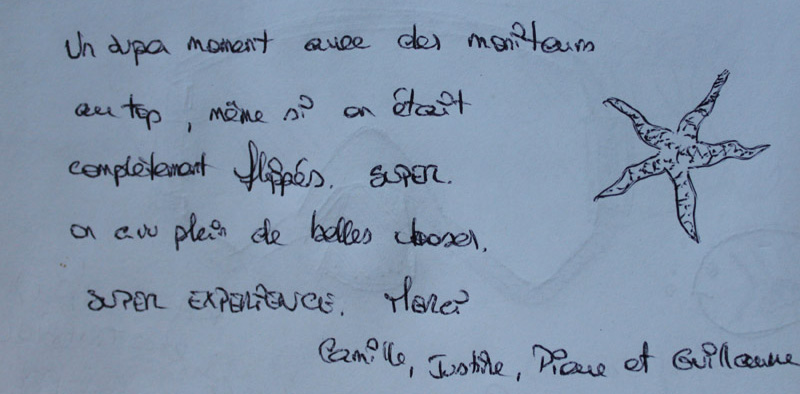 Un supa moment avec des moniteurs
au top, même si on était
complètement flippés. SUPER.
on a vu plein de belles choses.
SUPER EXPERIENCE. Merci
Camille, Justine, Diane et Guillaume